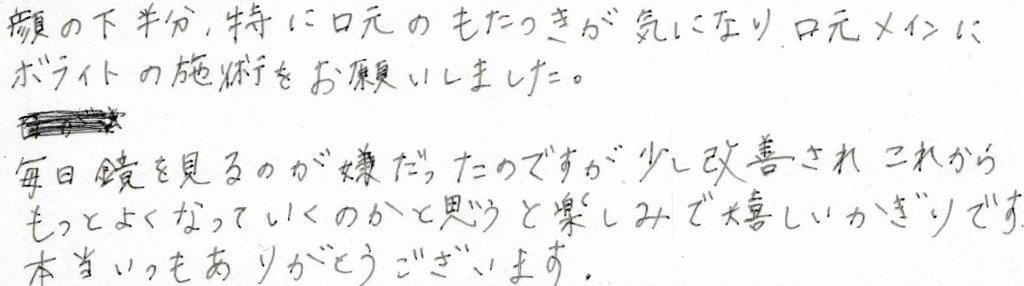 顔の下半分、特に口元のもたつきが気になり口元メインに
ボライトの施術をお願いしました。
毎日鏡を見るのが嫌だったのですが少し改善されこれから
もっとよくなっていくのかと思うと楽しみで嬉しいかぎりです
本当いつもありがとうございます.